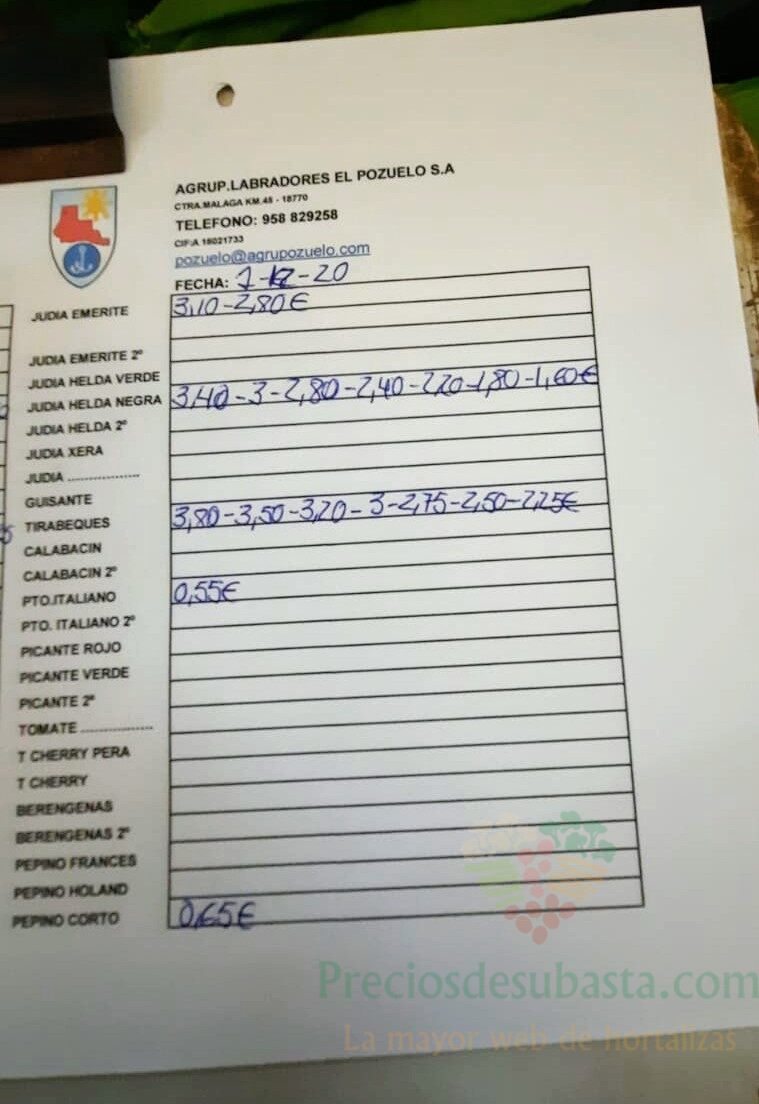 AGRUP.LABRADORES EL POZUELO S.A
CTRA.MALAGA KM.48 - 18770
TELEFONO: 958 829258
CIF:A 18021733
pozuelo@agrupozuelo.com
FECHA: 1-12-20
JUDIA EMERITE 3,10-2,80€
JUDIA EMERITE 2ª
JUDIA HELDA VERDE
JUDIA HELDA NEGRA 3,40-3-2,80-2,40-2,20-1,80-1,60€
JUDIA HELDA 2ª
JUDIA XERA
JUDIA ..................
GUISANTE
TIRABEQUES 3,80-3,50-3,20-3-2,75-2,50-2,25€
CALABACIN
CALABACIN 2ª
PTO.ITALIANO 0,55€
PTO. ITALIANO 2ª
PICANTE ROJO
PICANTE VERDE
PICANTE 2ª
TOMATE ..................
T CHERRY PERA
T CHERRY
BERENGENAS
BERENGENAS 2ª
PEPINO FRANCES
PEPINO HOLAND
PEPINO CORTO 0,65€
Preciosdesubasta.com
La mayor web de hortalizas